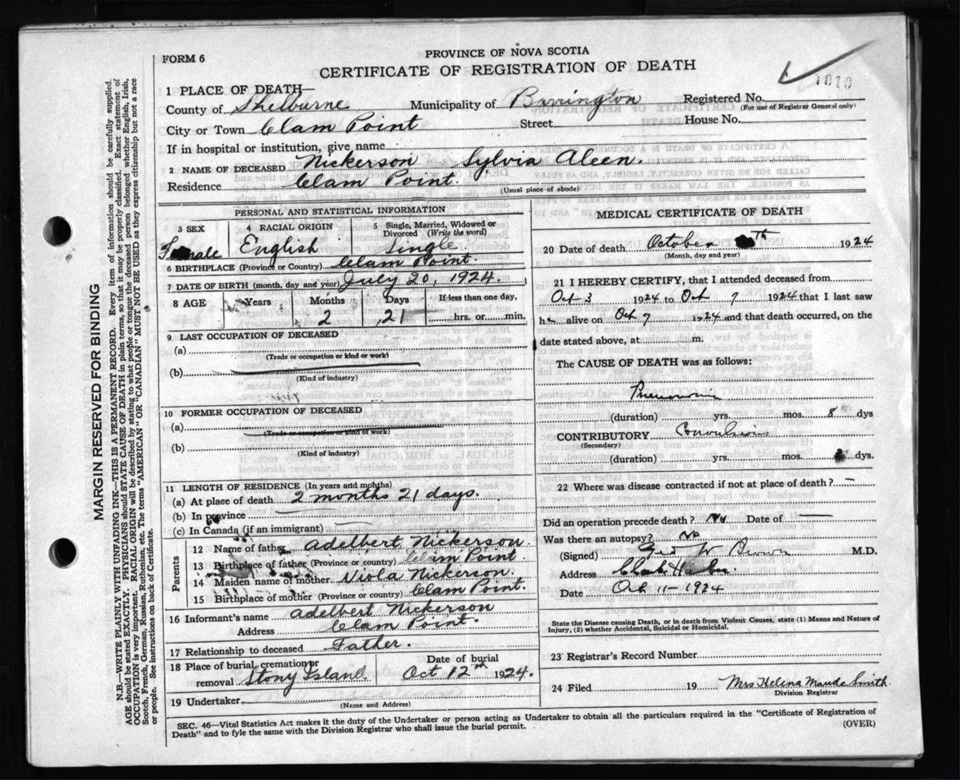 FORM 6
PROVINCE OF NOVA SCOTIA
CERTIFICATE OF REGISTRATION OF DEATH
1 PLACE OF DEATH—
County of Shelburne Municipality of Barrington Registered No. 1010
(For use of Registrar General only)
City or Town Clam Point Street House No.
If in hospital or institution, give name
2 NAME OF DECEASED Nickerson Sylvia Aleen.
Residence Clam Point.
(Usual place of abode)
PERSONAL AND STATISTICAL INFORMATION
3 SEX 4 RACIAL ORIGIN 5 Single, Married, Widowed or Divorced (Write the word)
Female English Single
6 BIRTHPLACE (Province or Country) Clam Point.
7 DATE OF BIRTH (month, day and year) July 20, 1924.
8 AGE Years Months Days If less than one day,
2 21 hrs. or min.
9 LAST OCCUPATION OF DECEASED
(a)
(Trade or occupation or kind or work)
(b)
(Kind of industry)
10 FORMER OCCUPATION OF DECEASED
(a)
(Trade or occupation or kind of work)
(b)
(Kind of industry)
11 LENGTH OF RESIDENCE (In years and months)
(a) At place of death 2 months 21 days.
(b) In province
(c) In Canada (if an immigrant)
Parents
12 Name of father Adelbert Nickerson.
13 Birthplace of father (Province or country) Clam Point
14 Maiden name of mother Viola Nickerson.
15 Birthplace of mother (Province or country) Clam Point.
16 Informant's name Adelbert Nickerson
Address Clam Point.
17 Relationship to deceased Father.
18 Place of burial, cremation or removal Stony Island Date of burial Oct 12th 1924.
19 Undertaker
(Name and Address)
MEDICAL CERTIFICATE OF DEATH
20 Date of death October th 1924
(Month, day and year)
21 I HEREBY CERTIFY, that I attended deceased from
Oct 3 1924 to Oct 7 1924 that I last saw
h alive on Oct 7 1924 and that death occurred, on the
date stated above, at m.
The CAUSE OF DEATH was as follows:
Pneumonia
(duration) yrs. mos. 8 dys
CONTRIBUTORY Convulsions
(Secondary)
(duration) yrs. mos. dys.
22 Where was disease contracted if not at place of death? —
Did an operation precede death? No Date of —
Was there an autopsy? no
(Signed) Geo W Brown M.D.
Address Clark Harbor.
Date Oct 11–1924
State the Disease causing Death, or in death from Violent Causes, state (1) Means and Nature of
Injury, (2) whether Accidental, Suicidal or Homicidal.
23 Registrar's Record Number
24 Filed 19 Mrs Helena Maude Smith.
Division Registrar
SEC. 46—Vital Statistics Act makes it the duty of the Undertaker or person acting as Undertaker to obtain all the particulars required in the "Certificate of Registration of
Death" and to fyle the same with the Division Registrar who shall issue the burial permit. (OVER)
MARGIN RESERVED FOR BINDING
N.B.—WRITE PLAINLY WITH UNFADING INK—THIS IS A PERMANENT RECORD. Every item of information should be carefully supplied.
AGE should be stated EXACTLY. PHYSICIANS should STATE CAUSE OF DEATH in plain terms, so that it may be properly classified. Exact statement of
OCCUPATION is very important. RACIAL ORIGIN will be described by stating to what people or tongue the deceased person belonged whether English, Irish,
Scotch, French, German, Russian, Ruthenian, etc. The terms "AMERICAN" or "CANADIAN" MUST NOT BE USED as they express citizenship but not a race
or people. See instructions on back of Certificate.